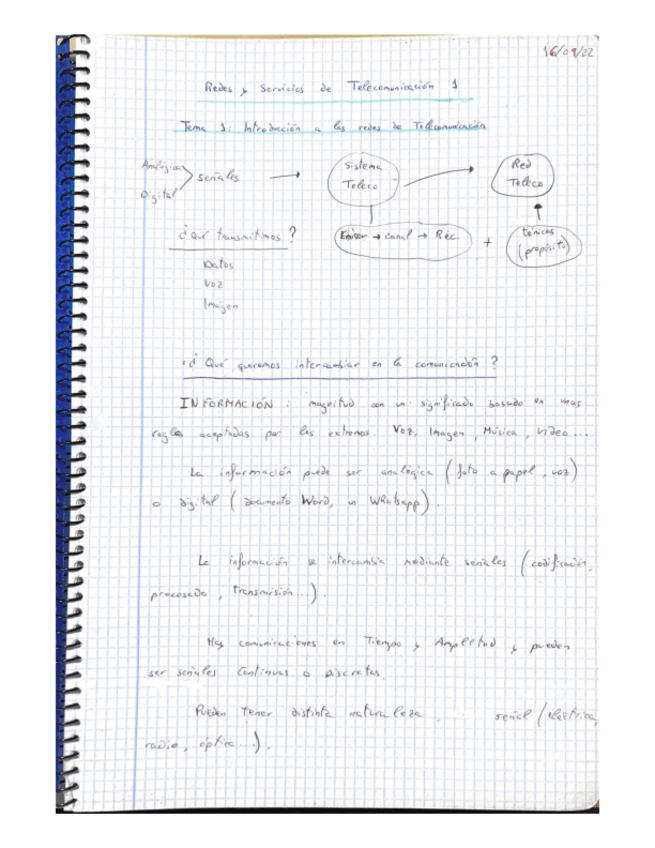 16/09/22
Redes y Servicios de Telecomunicación 1
Tema 1: Introducción a las redes de Telecomunicación
Analógica
Digital
señales
Sistema
Teleco
Red
Teleco
¿Qué transmitimos?
Emisor → canal → Rec.
+
(propósito)
Datos
Voz
Imagen
¿Qué queremos intercambiar en la comunicación?
INFORMACIÓN: magnitud con un significado basado en unas
reglas aceptadas por los extremos. Voz, Imagen, Música, video...
La información puede ser analógica (foto a papel, voz)
o digital (documento Word, un Whatsapp).
La información se intercambia mediante señales (codificación,
procesado, transmisión...).
Hay comunicaciones en Tiempo y Amplitud y pueden
ser señales Continuas o Discretas.
Pueden tener distinta naturaleza, señal (eléctrica,
radio, óptica...).